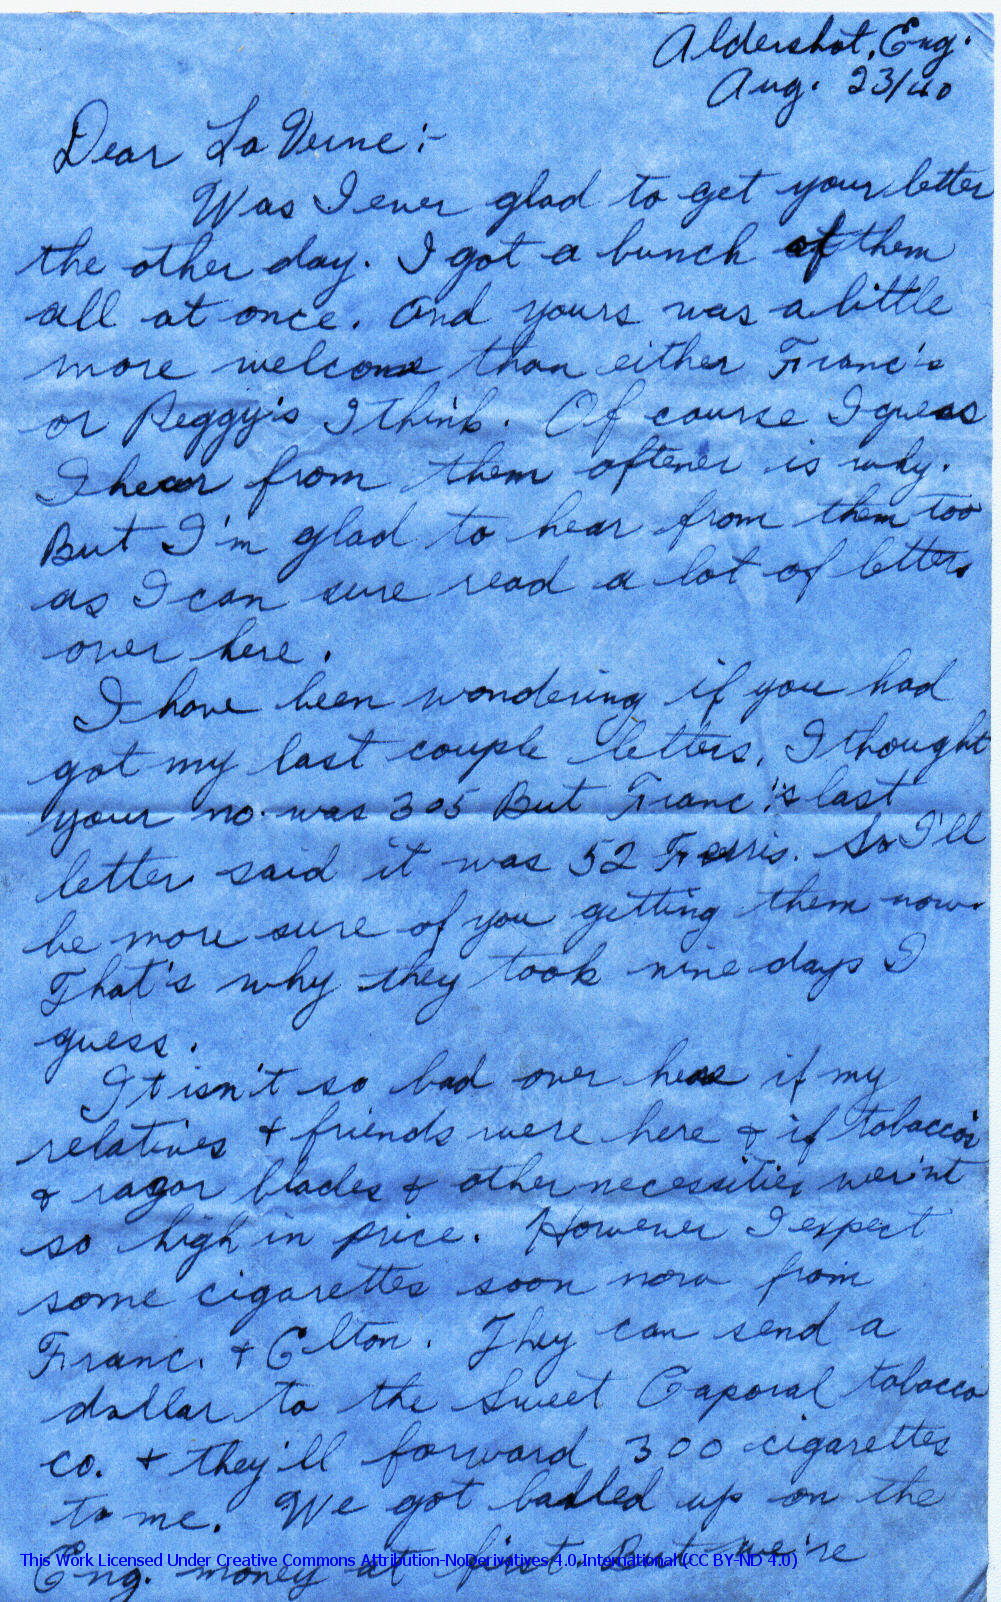 Aldershot, Eng.
Aug. 23/40
Dear La Verne:-
Was I ever glad to get your letter
the other day. I got a bunch of them
all at once. And yours was a little
more welcome than either Franc's
or Peggy's I think. Of course I guess
I hear from them oftener is why.
But I'm glad to hear from them too
as I can sure read a lot of letters
over here.
I have been wondering if you had
got my last couple letters. I thought
your no. was 305 But Franc's last
letter said it was 52 Ferris. So I'll
be more sure of you getting them now.
That's why they took nine days I
guess.
It isn't so bad over here if my
relatives & friends were here & if tobacco's
& razor blades & other necessities wer'nt
so high in price. However I expect
some cigarettes soon now from
Franc. & Elton. They can send a
dollar to the Sweet Caporal tobacco
co. & they'll forward 300 cigarettes
to me. We got balled up on the
Eng. money at first. But we're
This Work Licensed Under Creative Commons Attribution-NoDerivatives 4.0 International (CC BY-ND 4.0)